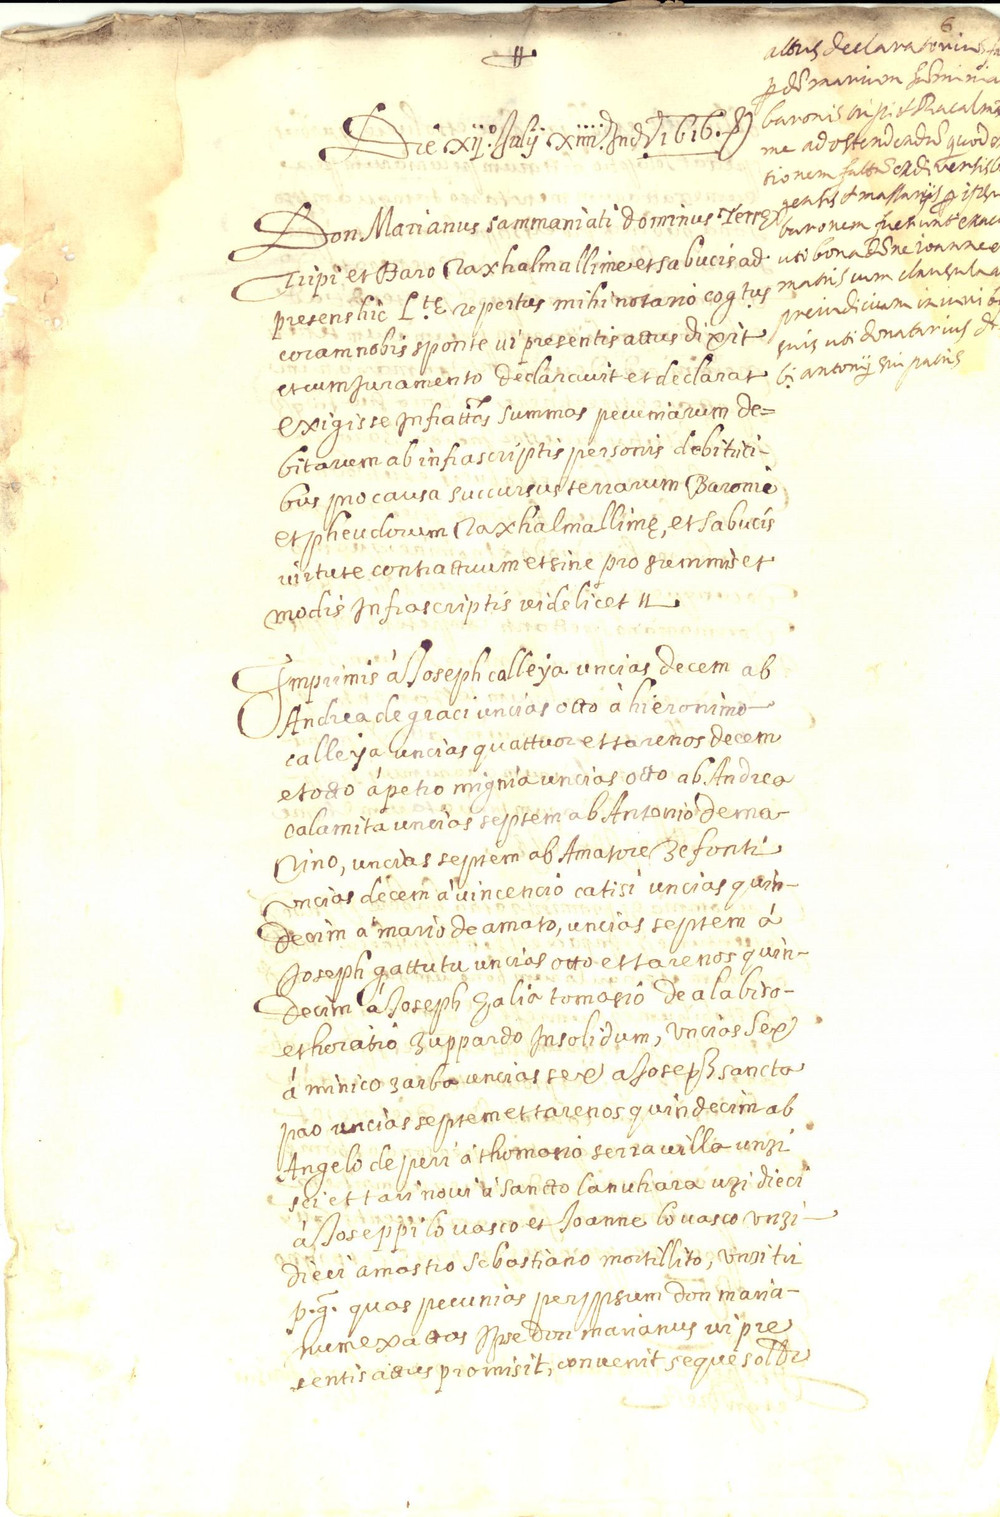 6
Die xij.º Julij xiiij. Ind. 1616
Don Marianus sammaniati dominus Terre
Tripi et Baro Raxhalmallime et sabucis ad
presens hic L.te repertus mihi notario cog.tus
coram nobis sponte vi presentis actus dixit
et cum Juramento declaravit et declarat
exigisse Infra.ttas summas pecuniarum de=
bitarum ab infrascriptis personis debitrici-
bus pro causa succursus terrarum Baronie
et pheudorum Raxhalmallime, et sabucis
virtute contractuum et sine pro summis et
modis Infrascriptis videlicet
Imprimis à Joseph calleya uncias decem ab
Andrea de graci uncias otto à hieronimo
calleya uncias quattuor et tarenos decem
et otto á petro mignia uncias otto ab Andrea
calamita uncias septem ab Antonio de ma-
rino, uncias septem ab Amatore Zefonti
uncias decem á vincencio catisi uncias quin-
decim á mario de amato, uncias septem á
Joseph gattutu uncias otto et tarenos quin-
decim á Joseph Galia tomasio de alabiso-
et horatio zuppardo Insolidum, uncias sex
á minico zarba uncias sex a Joseph sancta
pao uncias septem et tarenos quindecim ab
Angelo de peri á thomasio serravilla unzi
sei et tari novi á sancto lanuhara uzi dieci
á Joseppi lo vasco et Joanne lo vasco unzi
dieci a mastro sebastiano mortillito, unzi tri
p. q. quas pecunias per ipsum don maria-
num exactas Ipse don marianus vi pre
sentis actus promisit, convenit seque sol.
actus declaratorius
baronis tripi et Racalm
me ad ostendendum quod
tionem factam ex diversis
baronem fuerunt exac
uti bona D.ne ioanne
matris cum clausula
preiudicium in iuri
suis uti donatarius
antonij sui patris